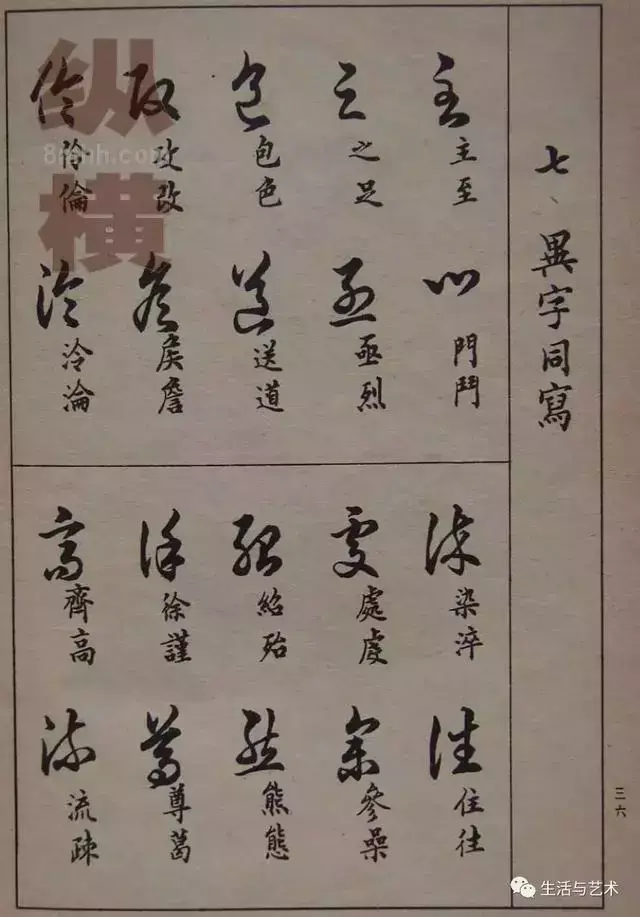 七、異字同寫
主至
門鬥
之足
亟烈
包色
送道
攻改
侯詹
伶倫
泠淪
染淬
住往
處虔
參喿
紹殆
熊態
徐謹
尊葛
齊高
流疎
三六
纵横
生活与艺术